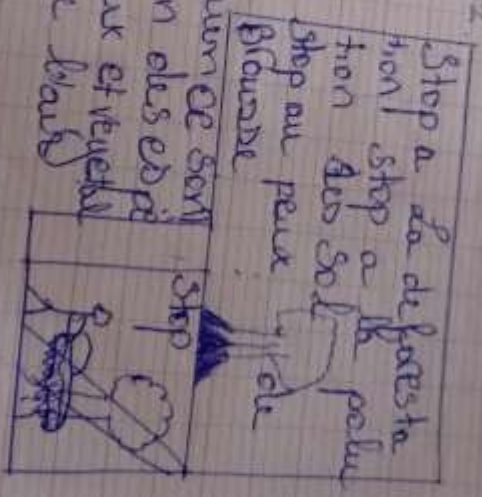 Stop a La deforesta
tion Stop a la polu
tion des Sol
Stop au peux de
Brousse
uence son
n des es
ux et veugetal
Stop